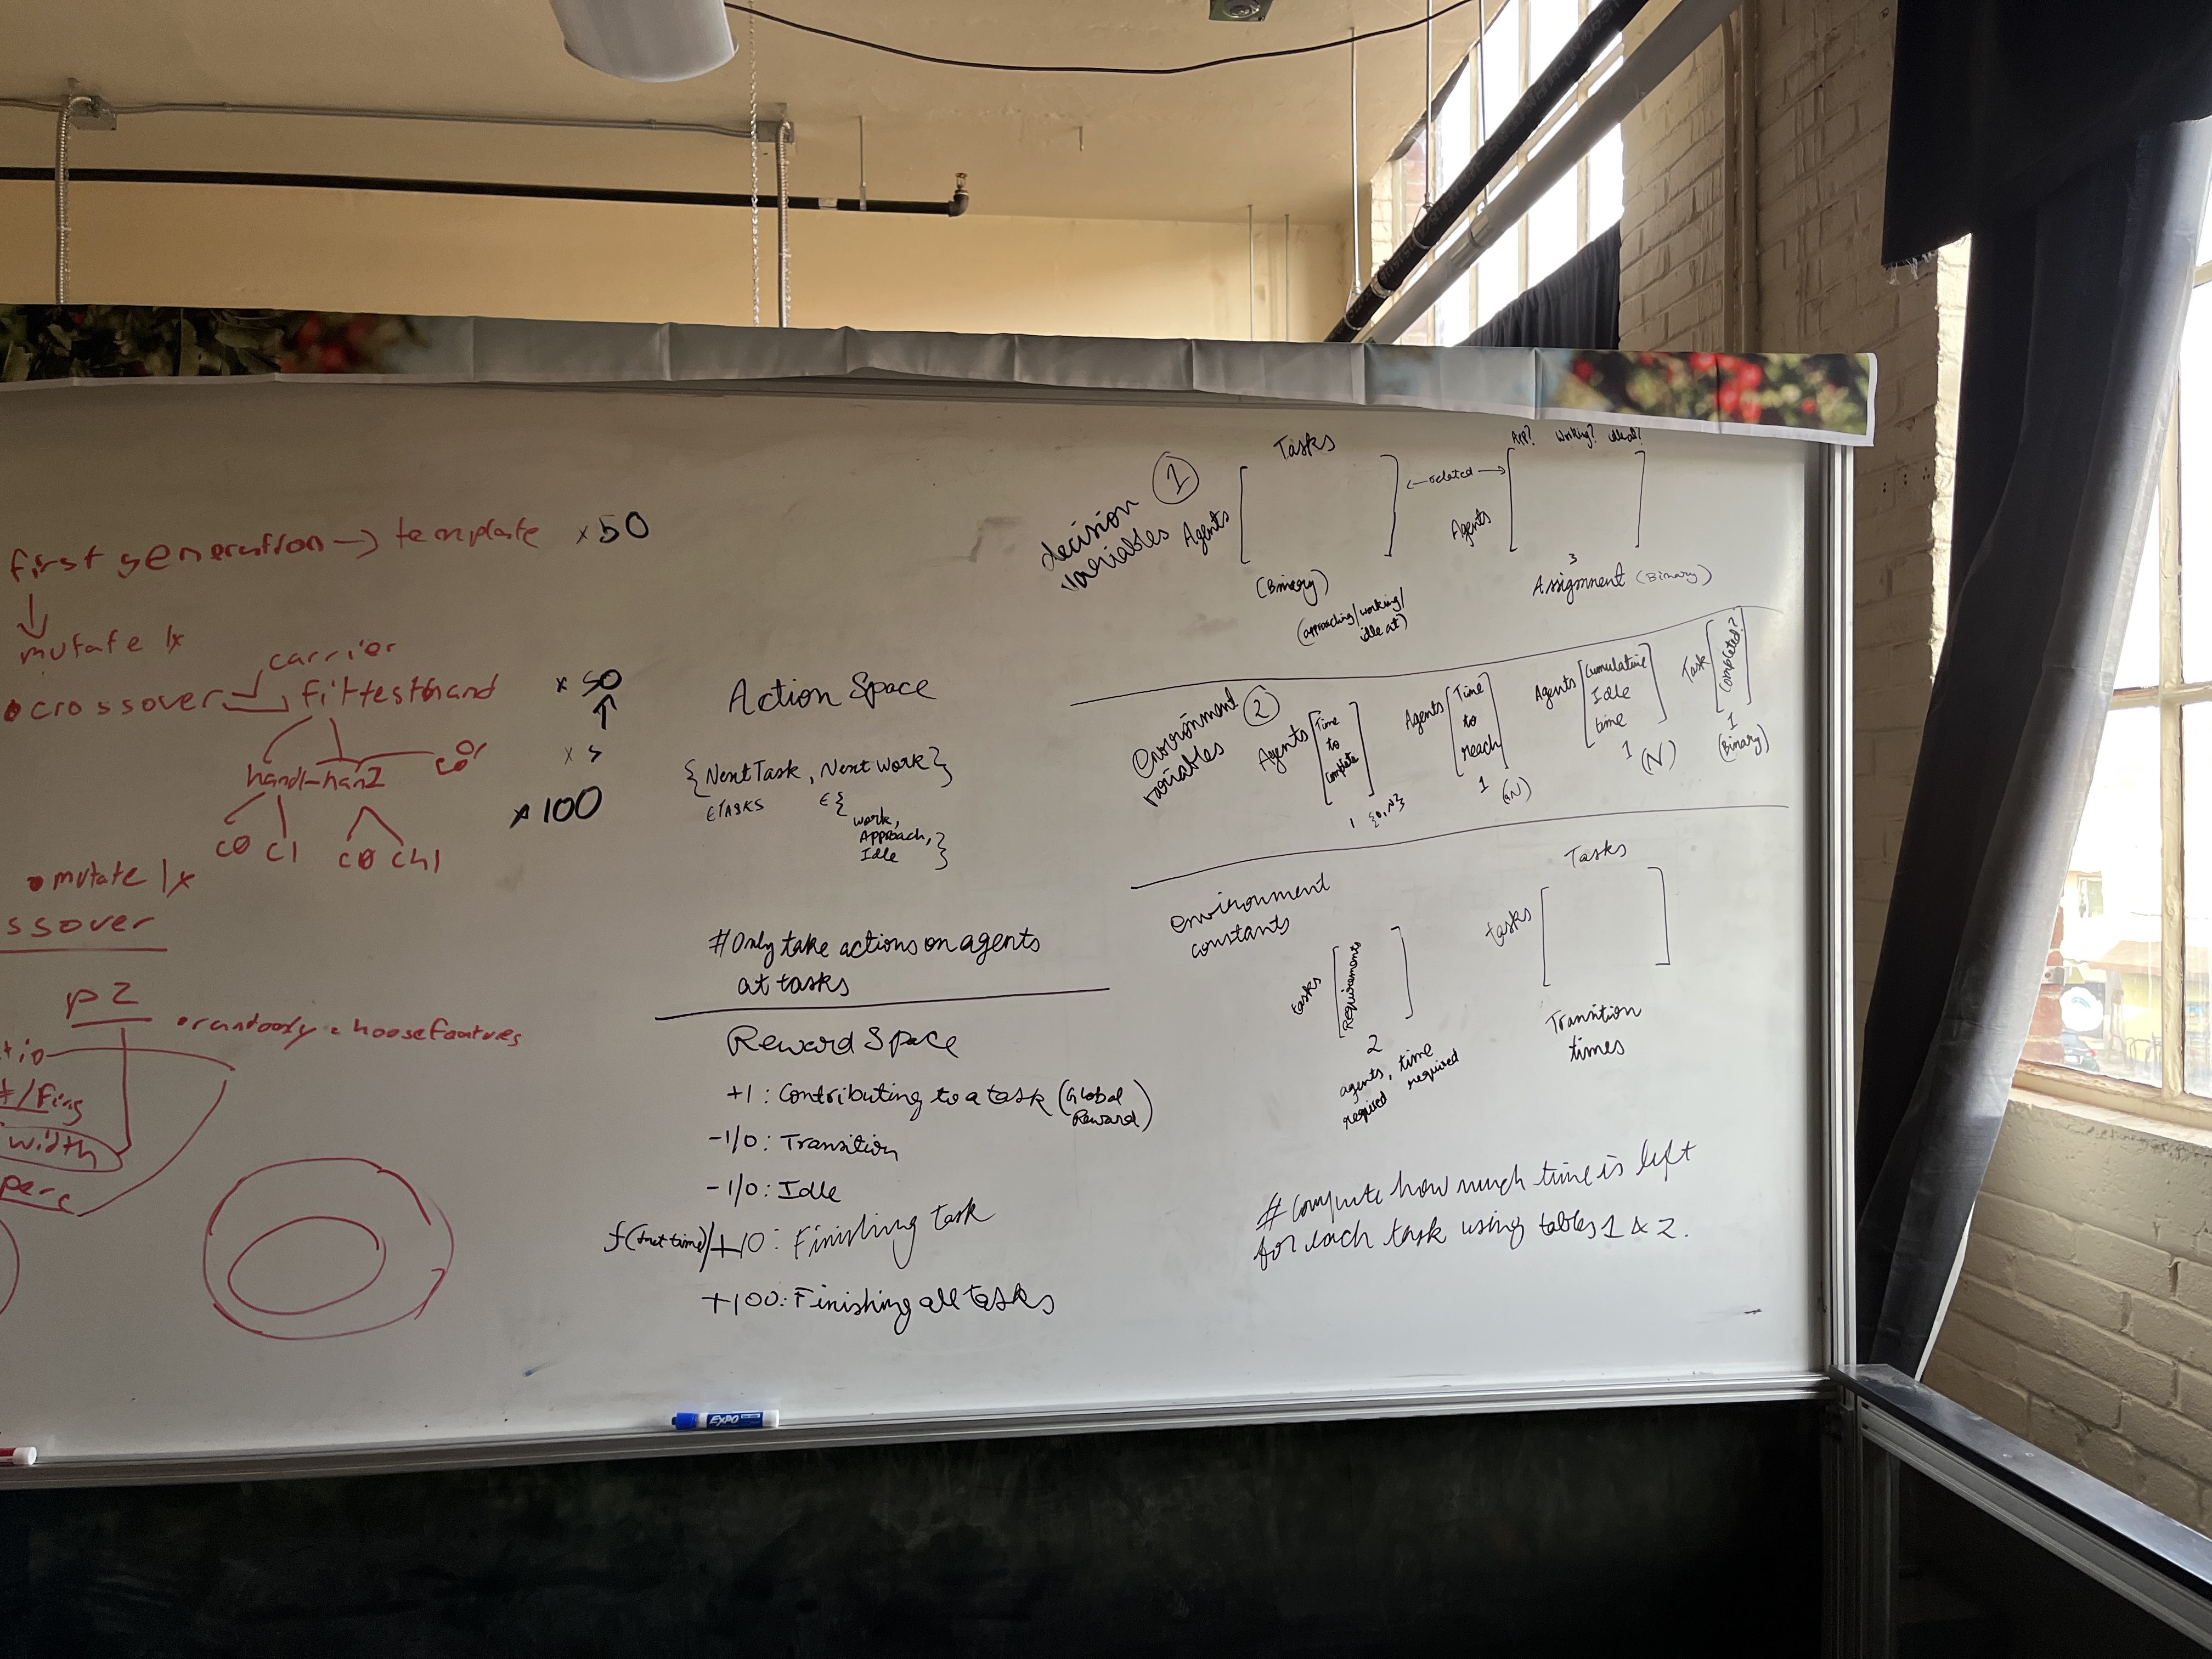 first generation → template × 50
↓
mutate 1x
carrier
• crossover fittest hand × 50
↑
hand1-han2 × 5
× 100
c0 c1 c0 ch1
• mutate 1x
ssover
p2
• randomly choose features
width
perc
Action Space
{Next Task, Next Work}
∈ TASKS ∈ {
work,
Approach,
Idle }
# Only take actions on agents
at tasks
Reward Space
+1 : Contributing to a task (Global
Reward)
-1/0 : Transition
-1/0 : Idle
+10 : Finishing task
+100: Finishing all tasks
decision
variables
1
Tasks
Agents
(Binary)
(approaching/working/
idle at)
← related →
App? Working? idle at?
Agents
3
Assignment (Binary)
Environment
variables
2
Agents [Time
to
complete]
1 {0,N}
Agents [Time
to
reach]
1 (N)
Agents [Cumulative
Idle
time]
1 (N)
Task [Completed?]
1
(Binary)
environment
constants
tasks [Requirements]
2
agents, time
required required
Tasks
tasks
Transition
times
# compute how much time is left
for each task using tables 1 & 2.
EXPO